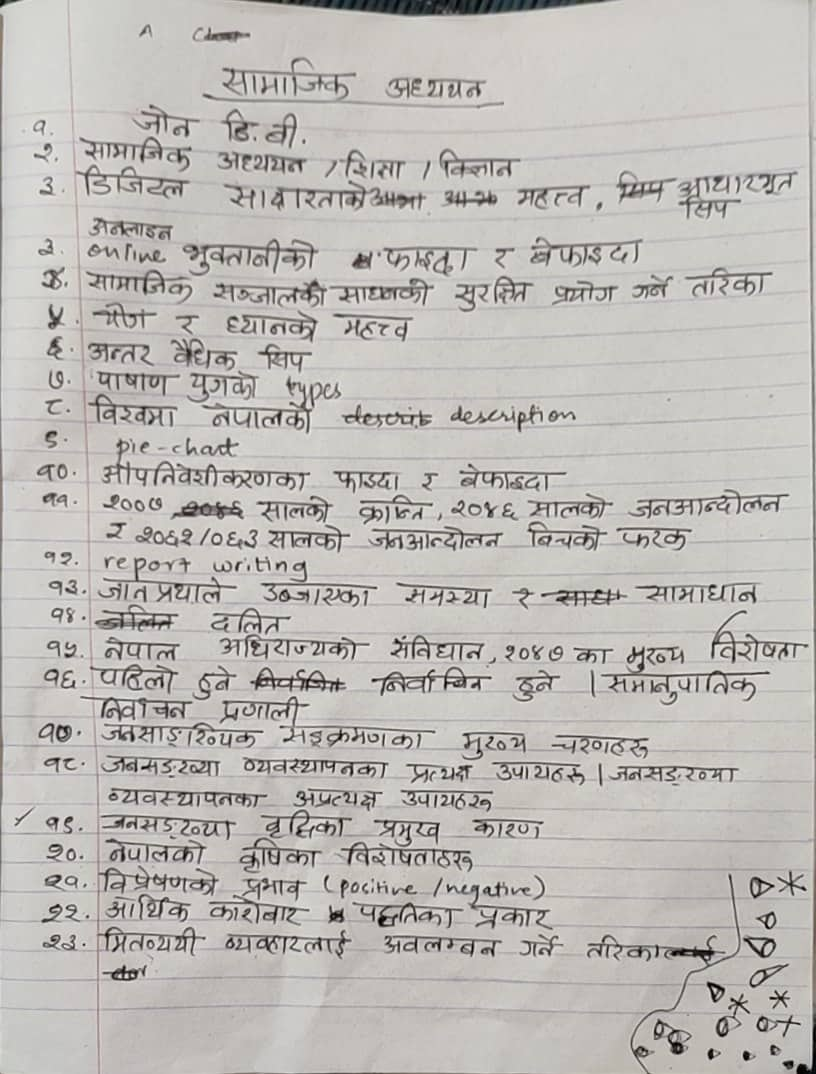 A
सामाजिक अध्ययन
१. जोन डि. वी.
२. सामाजिक अध्ययन / शिक्षा / विज्ञान
३. डिजिटल साक्षरताको महत्त्व, आधारभूत
सिप
अनलाइन
३. online भुक्तानीको फाइदा र बेफाइदा
४. सामाजिक सञ्जालको साधनको सुरक्षित प्रयोग गर्ने तरिका
५. योग र ध्यानको महत्त्व
६. अन्तर वैधिक सिप
७. पाषाण युगको types
८. विश्वमा नेपालको description
९. pie-chart
१०. औपनिवेशीकरणका फाइदा र बेफाइदा
११. २००७ सालको क्रान्ति, २०४६ सालको जनआन्दोलन
र २०६२/०६३ सालको जनआन्दोलन बिचको फरक
१२. report writing
१३. जातप्रथाले उब्जाएका समस्या र सामाधान
१४. दलित
१५. नेपाल अधिराज्यको संविधान, २०४७ का मुख्य विशेषता
१६. पहिलो हुने निर्वाचित हुने / समानुपातिक
निर्वाचन प्रणाली
१७. जनसाङ्ख्यिक सङ्क्रमणका मुख्य चरणहरू
१८. जनसङ्ख्या व्यवस्थापनका प्रत्यक्ष उपायहरू / जनसङ्ख्या
व्यवस्थापनका अप्रत्यक्ष उपायहरू
१९. जनसङ्ख्या वृद्धिका प्रमुख कारण
२०. नेपालको कृषिका विशेषताहरू
२१. विप्रेषणको प्रभाव (positive / negative)
२२. आर्थिक कारोबार पद्धतिका प्रकार
२३. मितव्ययी व्यवहारलाई अवलम्बन गर्ने तरिका